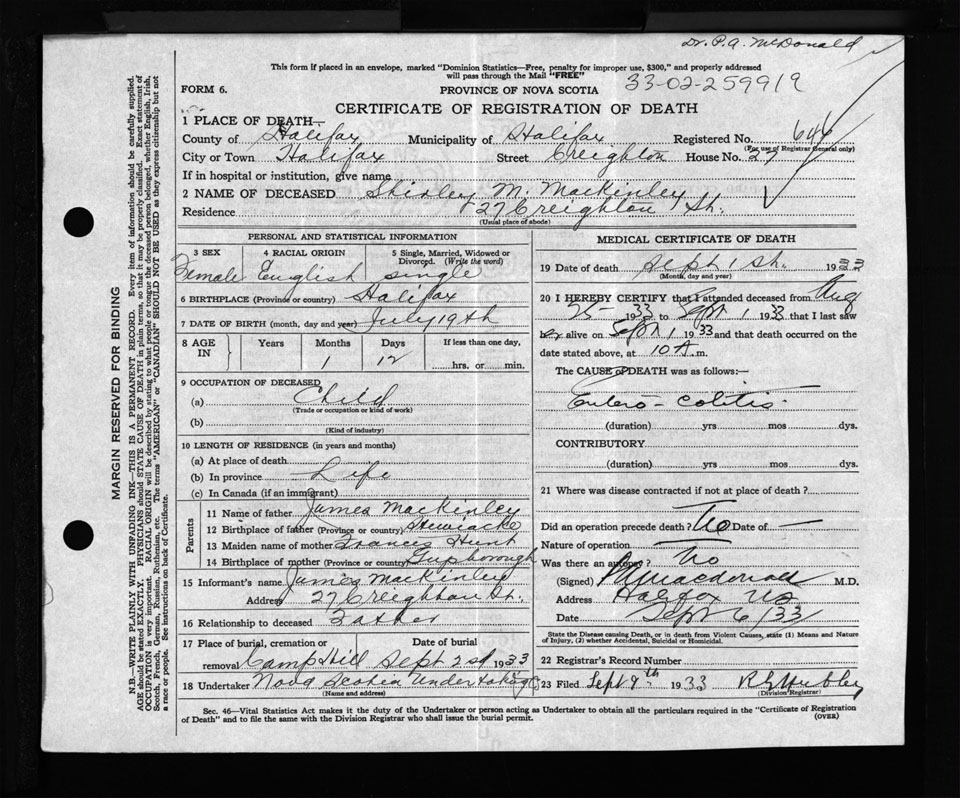 Dr. P.A. McDonald
This form if placed in an envelope, marked "Dominion Statistics—Free, penalty for improper use, $300," and properly addressed
will pass through the Mail "FREE"
33-02-259919
FORM 6.
PROVINCE OF NOVA SCOTIA
CERTIFICATE OF REGISTRATION OF DEATH
1 PLACE OF DEATH
County of Halifax Municipality of Halifax Registered No. 646
(For use of Registrar General only)
City or Town Halifax Street Creighton House No. 27
If in hospital or institution, give name
2 NAME OF DECEASED Shirley M. MacKinley
Residence 27 Creighton St.
(Usual place of abode)
PERSONAL AND STATISTICAL INFORMATION
3 SEX 4 RACIAL ORIGIN 5 Single, Married, Widowed or
Divorced. (Write the word)
Female English single
6 BIRTHPLACE (Province or country) Halifax
7 DATE OF BIRTH (month, day and year) July 19th
8 AGE IN Years Months Days If less than one day,
1 12 hrs. or min.
9 OCCUPATION OF DECEASED
(a) Child
(Trade or occupation or kind of work)
(b)
(Kind of industry)
10 LENGTH OF RESIDENCE (in years and months)
(a) At place of death
(b) In province Life
(c) In Canada (if an immigrant)
Parents
11 Name of father James MacKinley
12 Birthplace of father (Province or country) Stewiacke
13 Maiden name of mother Frances Hunt
14 Birthplace of mother (Province or country)
15 Informant's name James MacKinley
Address 27 Creighton St.
16 Relationship to deceased Father
17 Place of burial, cremation or Date of burial
removal Camp Hill Sept 2nd 1933
18 Undertaker Nova Scotia Undertaking Co
(Name and address)
MEDICAL CERTIFICATE OF DEATH
19 Date of death Sept 1st. 1933
(Month, day and year)
20 I HEREBY CERTIFY that I attended deceased from Aug
25 1933 to Sept 1 1933 that I last saw
her alive on Sept 1 1933 and that death occurred on the
date stated above, at 10 A. m.
The CAUSE of DEATH was as follows:—
Entero-colitis
(duration) yrs mos dys.
CONTRIBUTORY
(duration) yrs. mos. dys.
21 Where was disease contracted if not at place of death?
Did an operation precede death? No Date of —
Nature of operation
Was there an autopsy? No
(Signed) P A Macdonald M.D.
Address Halifax NS
Date Sept 6/33
State the Disease causing Death, or in death from Violent Causes, state (1) Means and Nature
of Injury, (2) whether Accidental, Suicidal or Homicidal.
22 Registrar's Record Number
23 Filed Sept 9th 1933
(Division Registrar)
Sec. 46—Vital Statistics Act makes it the duty of the Undertaker or person acting as Undertaker to obtain all the particulars required in the "Certificate of Registration
of Death" and to file the same with the Division Registrar who shall issue the burial permit.
(OVER)
MARGIN RESERVED FOR BINDING
N.B.—WRITE PLAINLY WITH UNFADING INK—THIS IS A PERMANENT RECORD. Every item of information should be carefully supplied.
AGE should be stated EXACTLY. PHYSICIANS should STATE CAUSE OF DEATH in plain terms, so that it may be properly classified. Exact statement of
OCCUPATION is very important. RACIAL ORIGIN will be described by stating to what people or tongue the deceased person belonged, whether English, Irish,
Scotch, French, German, Russian, Ruthenian, etc. The terms "AMERICAN" or "CANADIAN" SHOULD NOT BE USED as they express citizenship but not
a race or people. See instructions on back of Certificate.